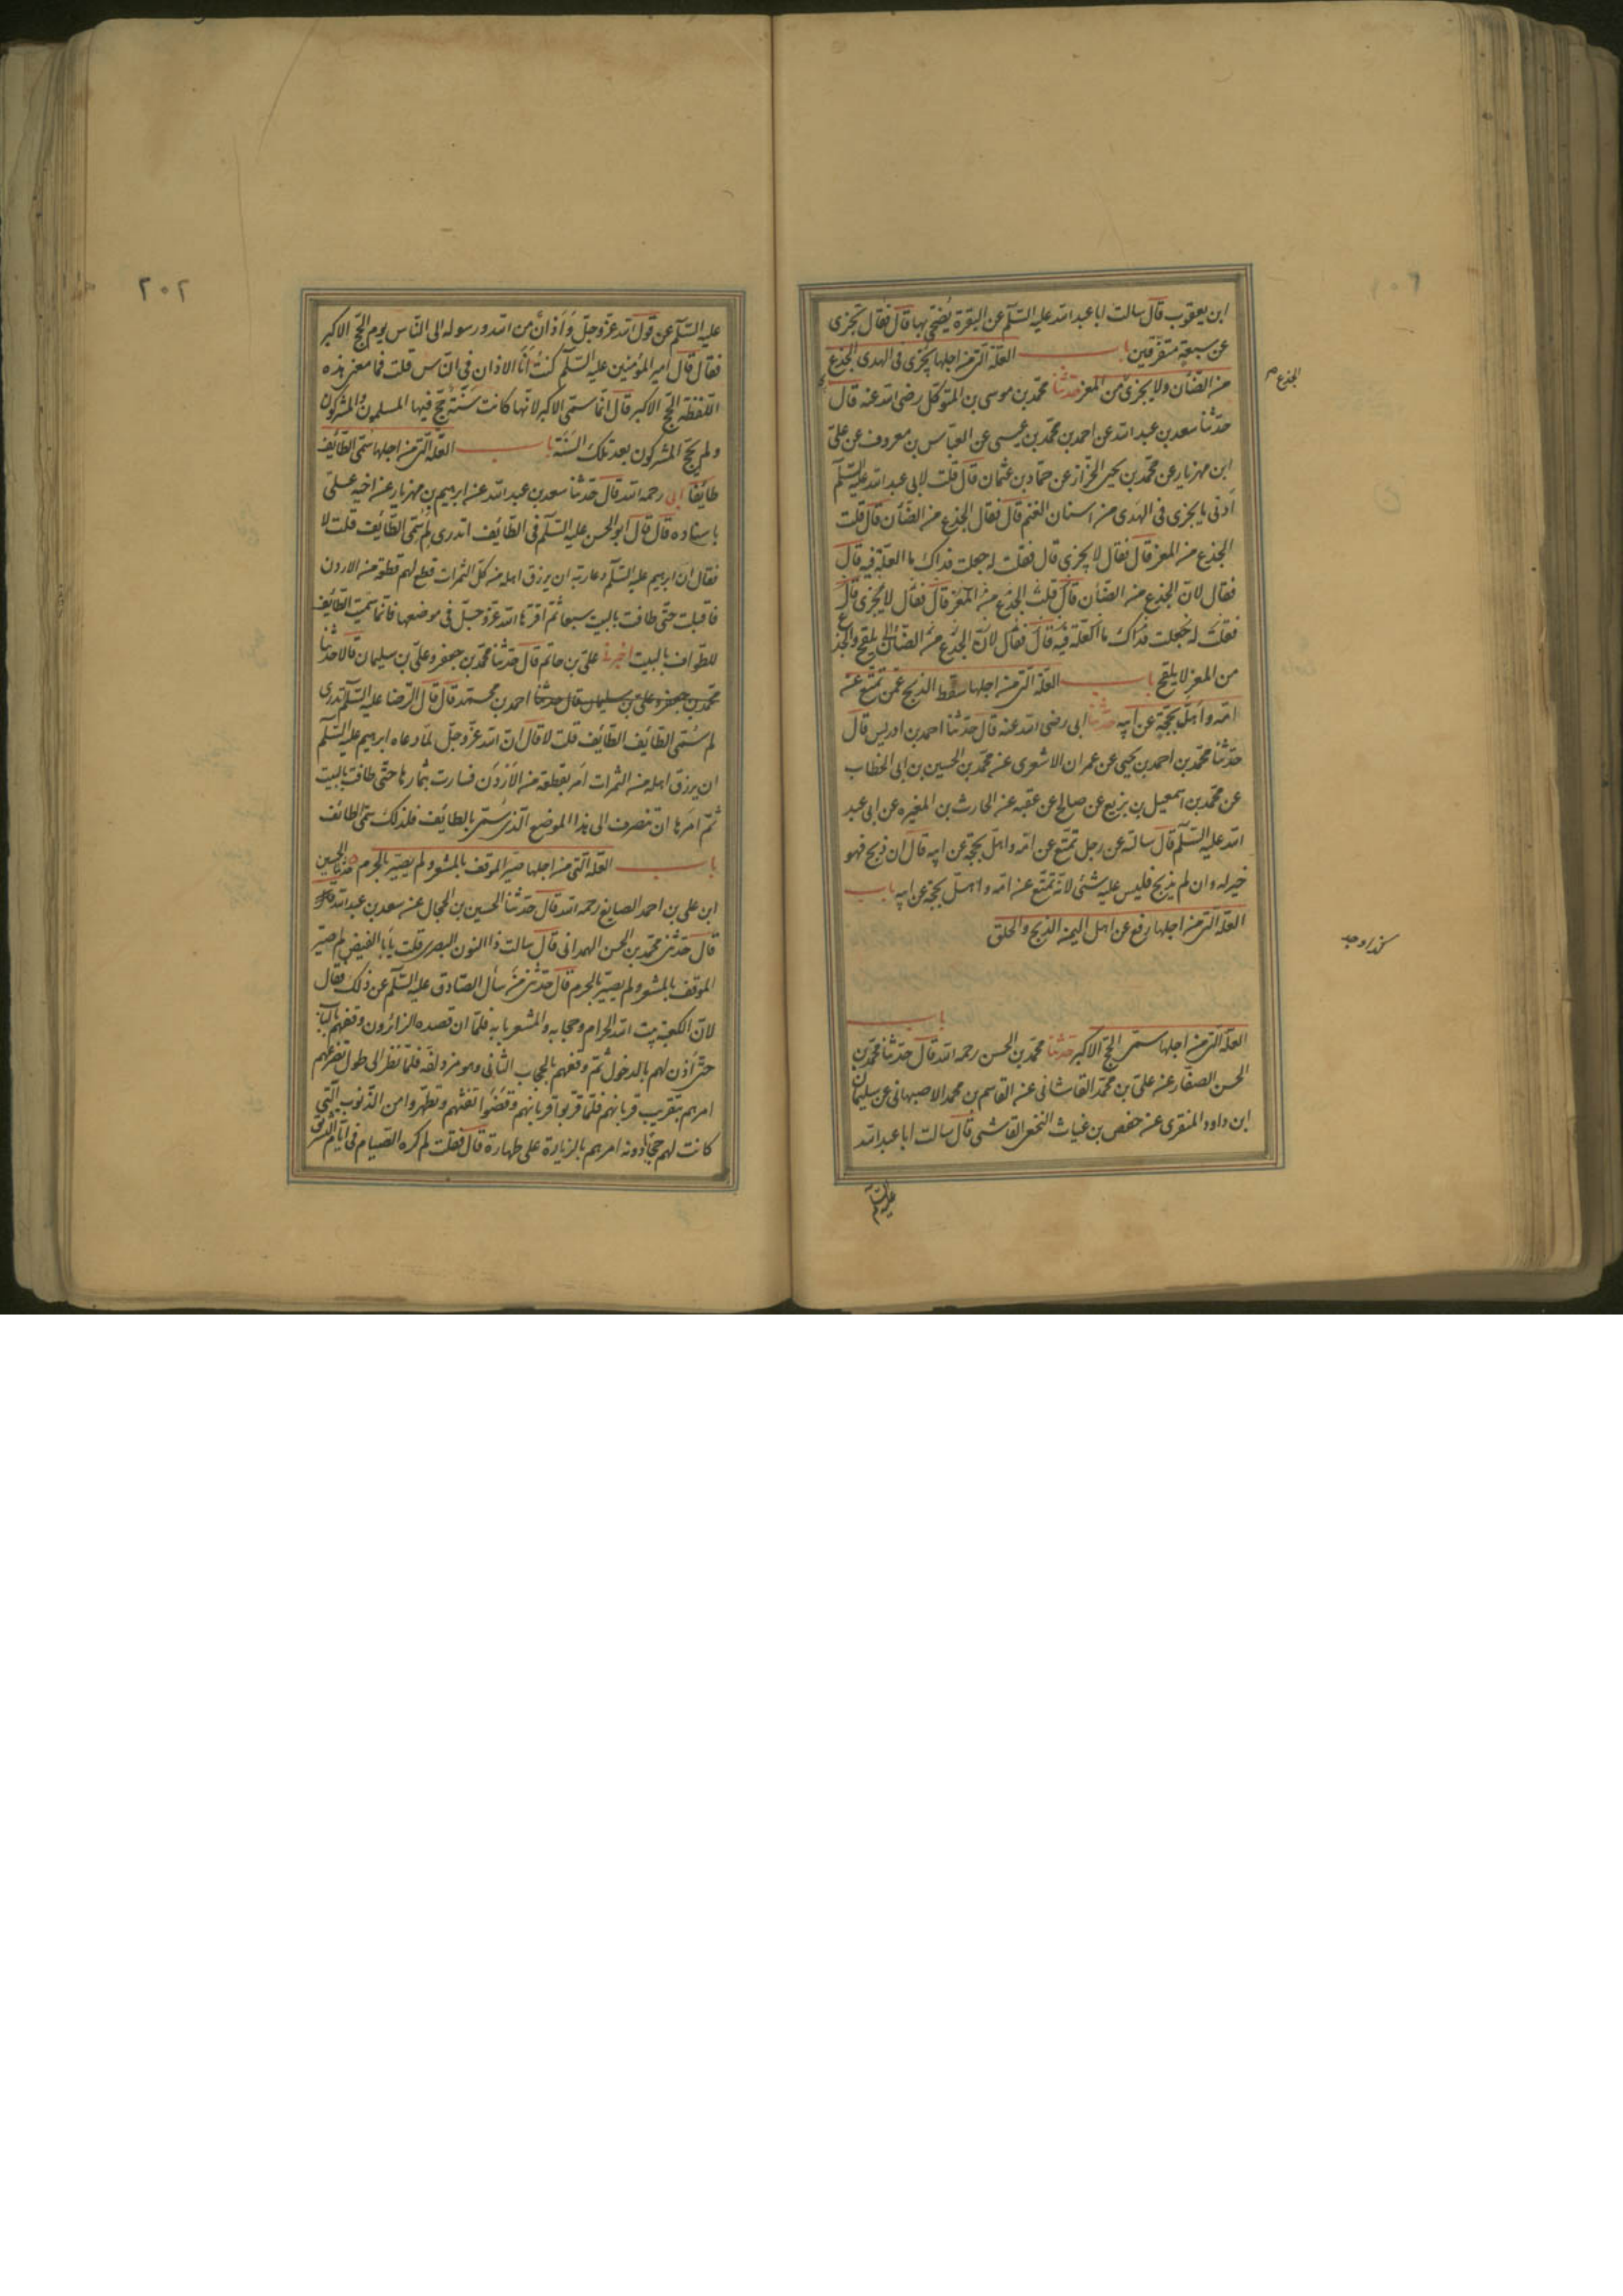 ابن يعقوب قال سالت ابا عبد الله عليه السلم عن البقرة يضحّى بها قال فقال تجزى
عن سبعة متفرّقين باب العلّة التى من اجلها يجزى فى الهدى الجذع
من الضأن ولا يجزى من المعز حدثنا محمّد بن موسى بن المتوكّل رضى الله عنه قال
حدّثنا سعد بن عبد الله عن احمد بن محمّد بن عيسى عن العبّاس بن معروف عن علىّ
ابن مهزيار عن محمّد بن يحيى الخزّاز عن حمّاد بن عثمان قال قلت لابى عبد الله عليه السّلم
أدنى ما يجزى فى الهدى من اسنان الغنم قال فقال الجذع من الضأن قال قلت
الجذع من المعز قال فقال لا يجزى قال فقلت له جعلت فداك ما العلّة فيه قال
فقال لانّ الجذع من الضأن قال قلت الجذع من المعز قال فقال لا يجزى قال
فقلت له جعلت فداك ما العلّة فيه قال فقال لانّ الجذع من الضأن يلقح والجذع
من المعز لا يلقح باب العلّة التى من اجلها سقط الذبح عمّن تمتّع عن
امّه واهلّ بحجّة عن ابيه حدّثنا ابى رضى الله عنه قال حدّثنا احمد بن ادريس قال
حدّثنا محمّد بن احمد بن يحيى عن عمران الاشعرى عن محمّد بن الحسين بن ابى الخطاب
عن محمّد بن اسمعيل بن بزيع عن صالح عن عقبه عن الحارث بن المغيره عن ابى عبد
الله عليه السّلم قال سالته عن رجل تمتّع عن امّه واهلّ بحجّة عن ابيه قال ان ذبح فهو
خير له وان لم يذبح فليس عليه شئ لانّه تمتّع عن امّه واهلّ بحجّة عن ابيه باب
العلّة التى من اجلها رفع عن اهل اليمن الذبح والحلق
باب
العلّة التى من اجلها سمّى الحجّ الاكبر حدّثنا محمّد بن الحسن رحمه الله قال حدّثنا محمّد بن
الحسن الصفّار عن علىّ بن محمّد القاشانى عن القاسم بن محمد الاصبهانى عن سليمان
ابن داود المنقرى عن حفص بن غياث النخعى القاضى قال سالت ابا عبد الله
عليه السلم
الجذع
كذا وجد
٢٠٢
عليه السّلم عن قول الله عزّ وجلّ وَأذانٌ من الله ورسوله الى النّاس يوم الحجّ الاكبر
فقال قال امير المؤمنين عليه السّلم كنت أنا الاذان فى النّاس قلت فما معنى هذه
اللّفظة الحجّ الاكبر قال انّما سمّى الاكبر لانّها كانت سَنَة حجّ فيها المسلمون والمشركون
ولم يحجّ المشركون بعد تلك السّنة باب العلّة الّتى من اجلها سُمّى الطّائف
طائفا ابى رحمه الله قال حدّثنا سعد بن عبد الله عن ابرهيم بن مهزيار عن اخيه علىّ
باسناده قال قال ابو الحسن عليه السّلم فى الطّائف اتدرى لم سُمّى الطّائف قلت لا
فقال انّ ابرهيم عليه السّلم دعا ربّه ان يرزق اهله من كلّ الثمرات فقطع لهم قطعة من الاردن
فاقبلت حتّى طافت بالبيت سبعا ثمّ اقرّها الله عزّ وجلّ فى موضعها فانّما سمّيت الطّائف
للطّواف بالبيت اخبرنا علىّ بن حاتم قال حدّثنا محمّد بن جعفر وعلىّ بن سليمان قالا حدّثنا
محمّد بن جعفر وعلى بن سليمان قال حدثنا احمد بن محمّد قال قال الرّضا عليه السّلم اتدرى
لم سُمّى الطّائف الطّائف قلت لا قال انّ الله عزّ وجلّ لمّا دعاه ابرهيم عليه السّلم
ان يرزق اهله من الثمرات أمر بقطعة من الأرْدُن فسارت بثمارها حتّى طافت بالبيت
ثمّ امرها ان تنصرف الى هذا الموضع الّذى سُمّى بالطائف فلذلك سمّى الطائف
باب العلّة الّتى من اجلها صيّر الموقف بالمشعر ولم يصيّر بالحرم حدثنا الحسين
ابن على بن احمد الصايغ رحمه الله قال حدّثنا الحسين بن الحجال عن سعد بن عبد الله
قال حدّثنى محمّد بن الحسن الهمدانى قال سالت ذا النون البصرى قلت يا أبا الفيض لم صيّر
الموقف بالمشعر ولم يصيّر بالحرم قال حدّثنى من سأل الصّادق عليه السّلم عن ذلك فقال
لانّ الكعبة بيت الله الحرام وحجابه والمشعر بابه فلمّا ان قصده الزائرون وقفهم بالباب
حتّى أذن لهم بالدخول ثمّ وقفهم بالحجاب الثانى وهو مزدلفة فلمّا نظر الى طول تضرّعهم
امرهم بتقريب قربانهم فلمّا قرّبوا قربانهم وقضوا تفثهم وتطهّروا من الذّنوب الّتى
كانت لهم حجابا دونه امرهم بالزيارة على طهارة قال فقلت لم كره الصّيام فى ايّام التّشريق